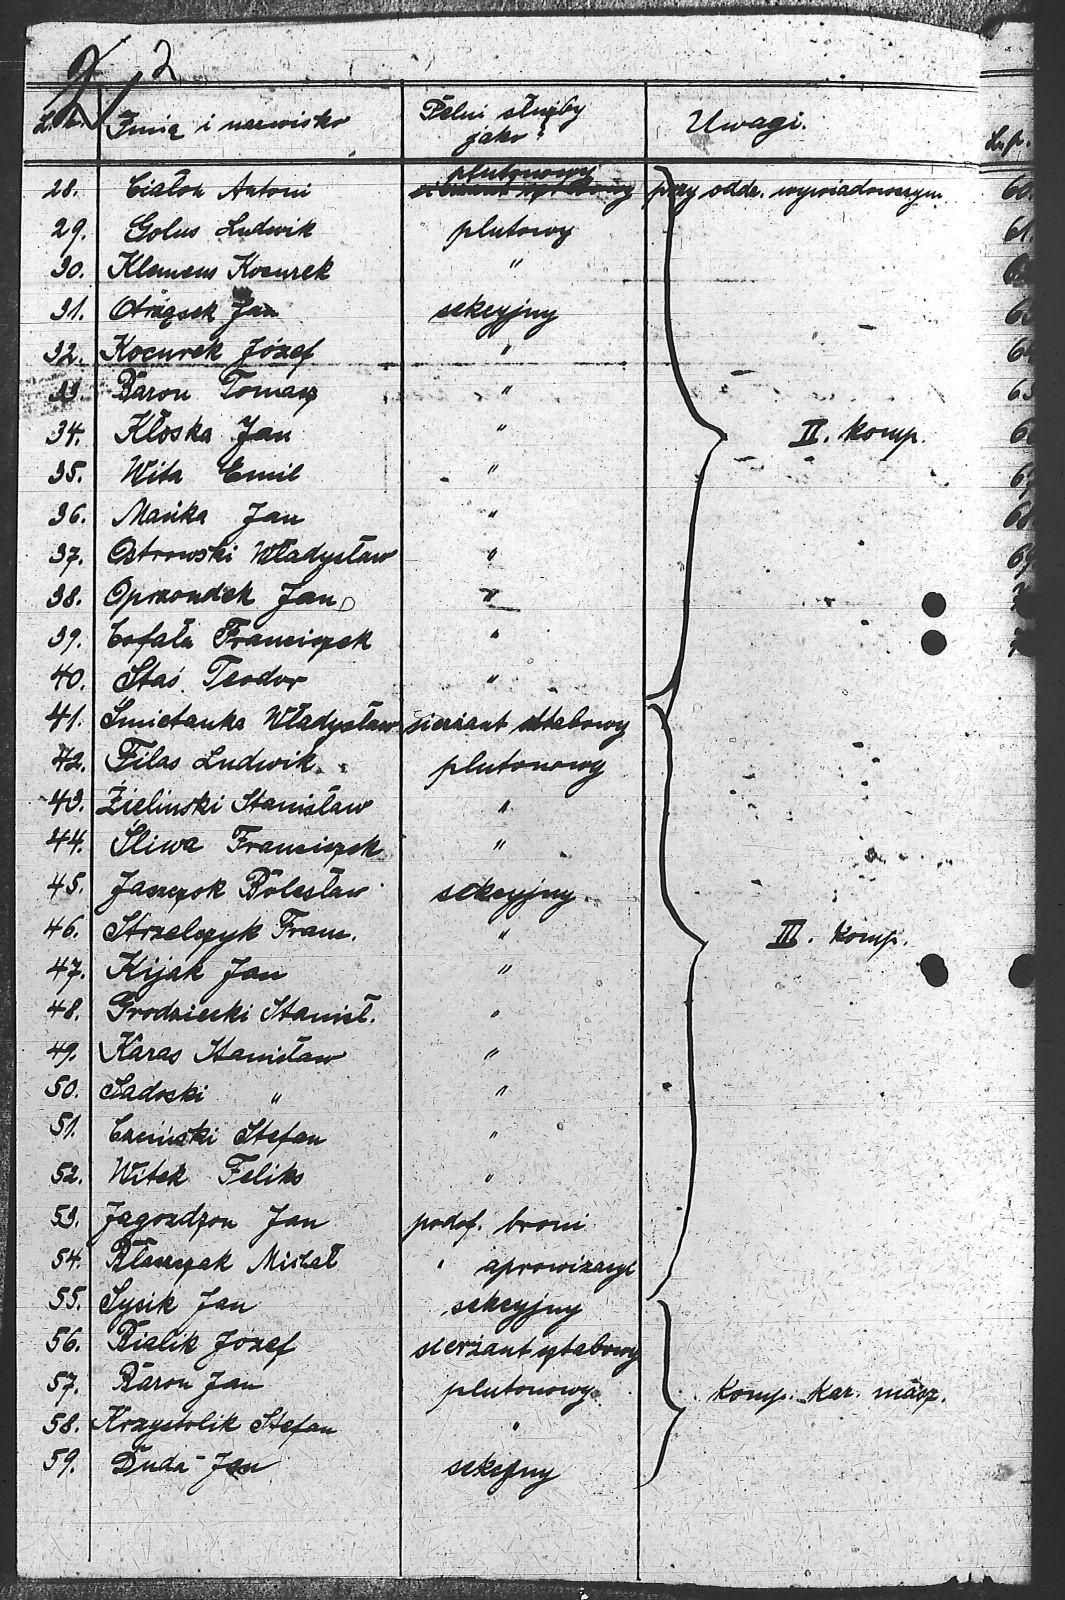 2
L.p. Imię i nazwisko Pełni służby jako: Uwagi. L.p.
28. Ciałon Antoni plutonowy przy oddz. wywiadowczym
29. Golus Ludwik plutowy
30. Klemens Kocurek "
31. Otrząsek Jan sekcyjny
32. Kocurek Józef "
33 Baron Tomasz "
34. Kłoska Jan " II. komp.
35. Wita Emil "
36. Mańka Jan "
37. Ostrowski Władysław "
38. Oprzondek Jan "
39. Cofała Franciszek "
40. Staś Teodor "
41. Śmietanka Władysław sierżant sztabowy
42. Filas Ludwik plutonowy
43. Zieliński Stanisław "
44. Śliwa Franciszek "
45. Jaszczok Bolesław sekcyjny
46. Strzelczyk Franc. " III. komp.
47. Kijak Jan "
48. Grodziecki Stanisł. "
49. Karas Stanisław "
50. Sadoski " "
51. Czciński Stefan "
52. Witek Feliks "
53. Jagozdzon Jan podof. broni
54. Błaszczak Michał " aprowizacyj
55. Sysik Jan sekcyjny
56. Bialik Józef sierżant sztabowy
57. Baron Jan plutonowy komp. kar. masz.
58. Krzystolik Stefan "
59. Duda Jan sekcyjny